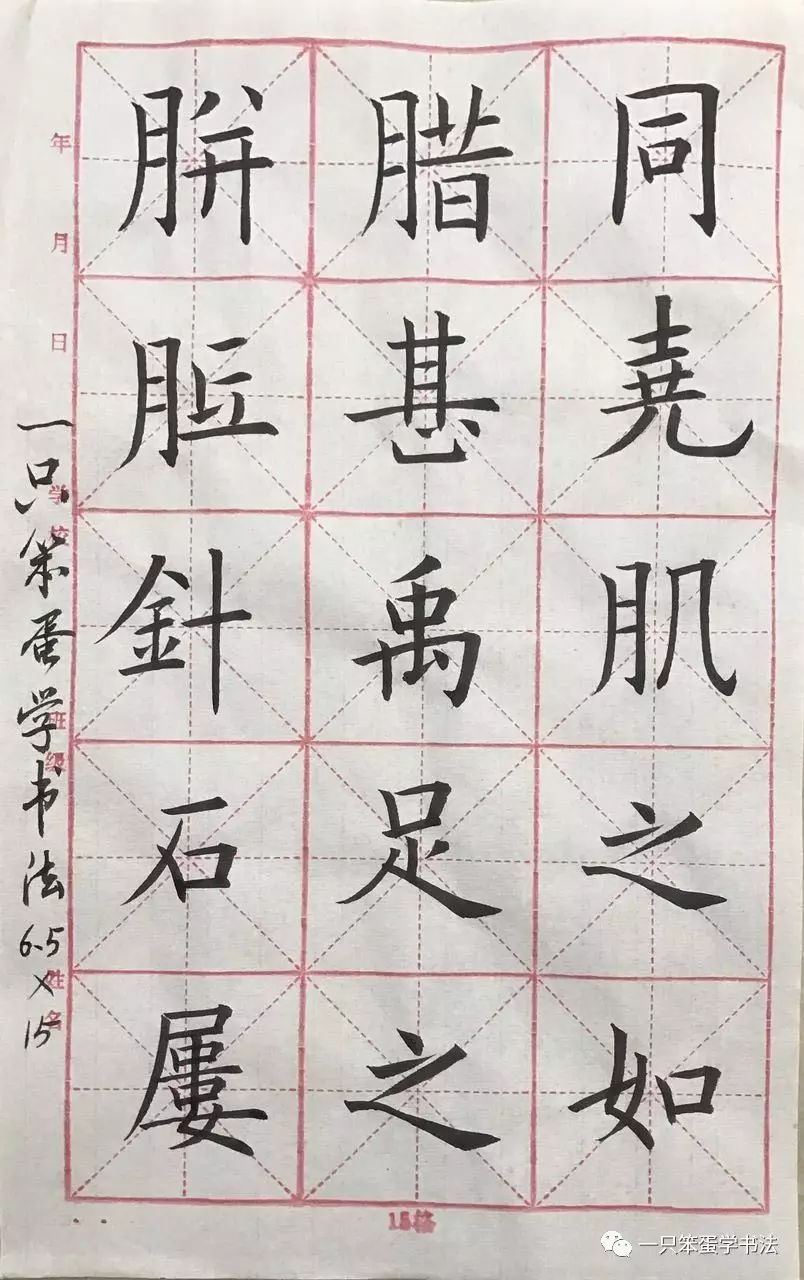 同堯肌之如
腊甚禹足之
胼胝針石屢
年 月 日
学校 班级 姓名
一只笨蛋学书法 6.5×15
15格
一只笨蛋学书法